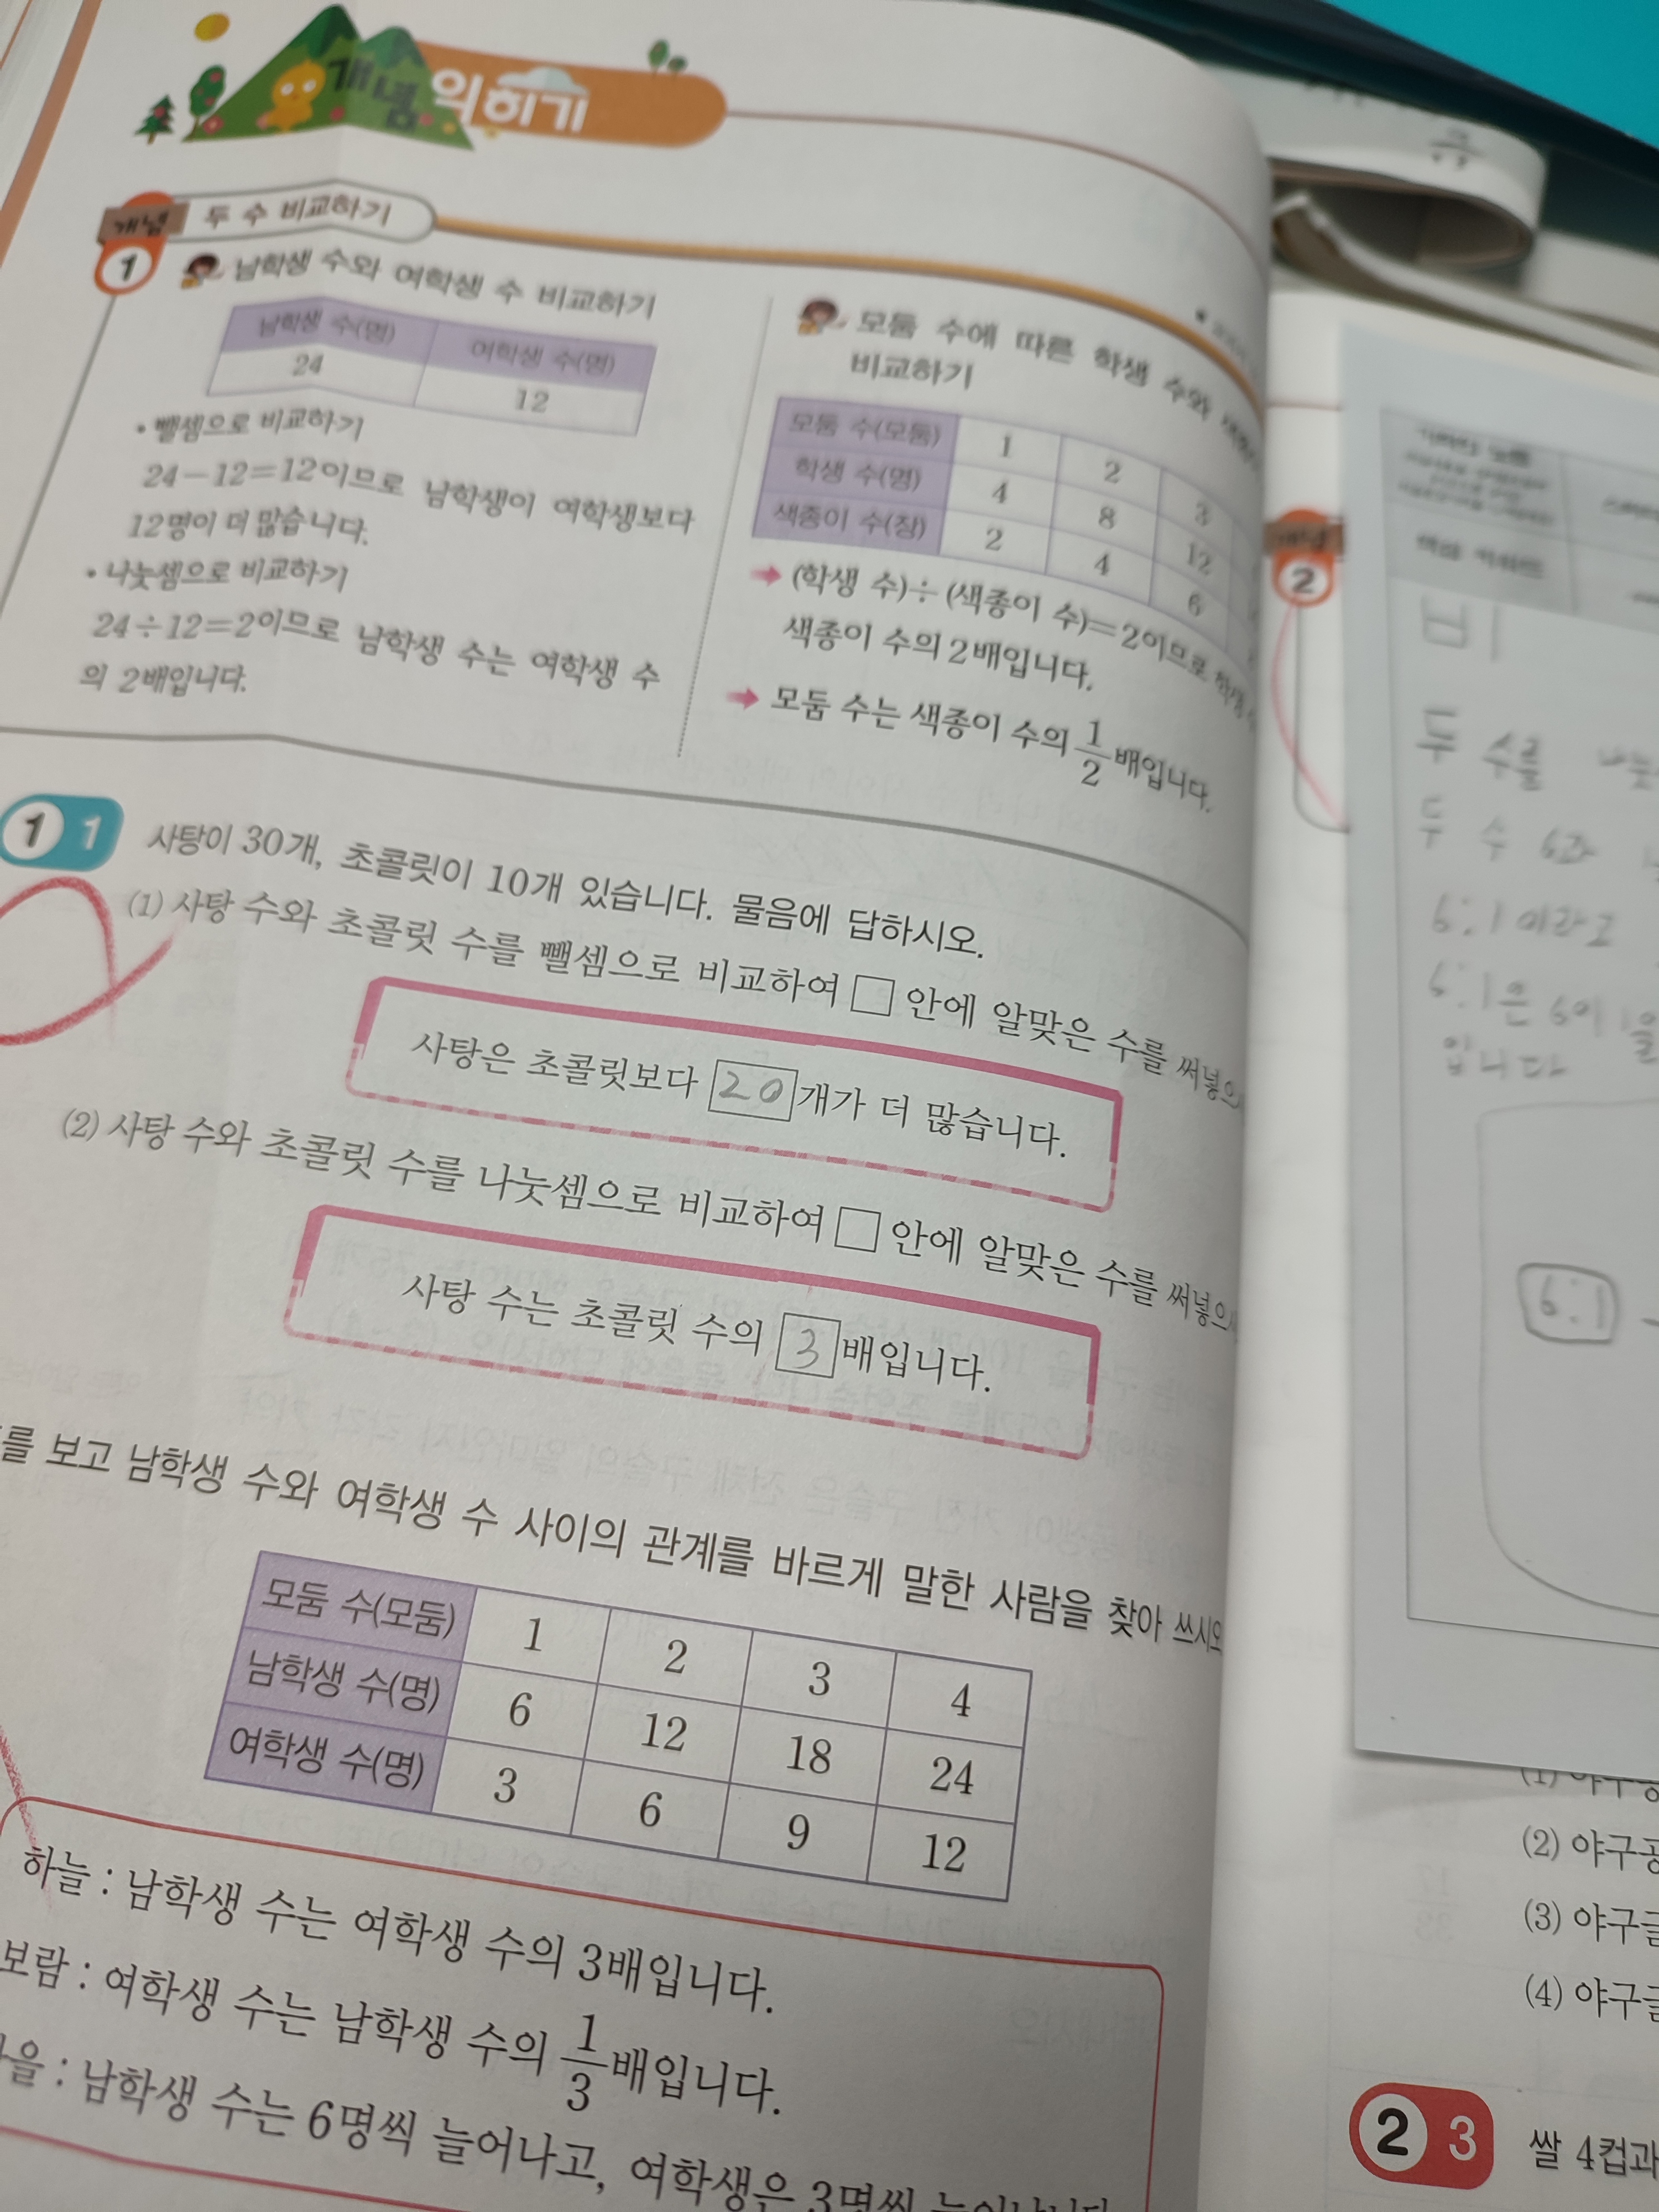 개념 익히기
개념 1 두 수 비교하기
남학생 수와 여학생 수 비교하기
남학생 수(명) 여학생 수(명)
24 12
• 뺄셈으로 비교하기
24-12=12이므로 남학생이 여학생보다
12명이 더 많습니다.
• 나눗셈으로 비교하기
24÷12=2이므로 남학생 수는 여학생 수
의 2배입니다.
모둠 수에 따른 학생 수와
비교하기
모둠 수(모둠) 1 2 3
학생 수(명) 4 8 12
색종이 수(장) 2 4 6
➡ (학생 수)÷(색종이 수)=2이므로 학생
색종이 수의 2배입니다.
➡ 모둠 수는 색종이 수의 1/2배입니다.
1 1 사탕이 30개, 초콜릿이 10개 있습니다. 물음에 답하시오.
(1) 사탕 수와 초콜릿 수를 뺄셈으로 비교하여 □ 안에 알맞은 수를 써넣으
사탕은 초콜릿보다 20 개가 더 많습니다.
(2) 사탕 수와 초콜릿 수를 나눗셈으로 비교하여 □ 안에 알맞은 수를 써넣으
사탕 수는 초콜릿 수의 3 배입니다.
를 보고 남학생 수와 여학생 수 사이의 관계를 바르게 말한 사람을 찾아 쓰시오
모둠 수(모둠) 1 2 3 4
남학생 수(명) 6 12 18 24
여학생 수(명) 3 6 9 12
하늘 : 남학생 수는 여학생 수의 3배입니다.
보람 : 여학생 수는 남학생 수의 1/3배입니다.
을 : 남학생 수는 6명씩 늘어나고, 여학생은 3명씩 늘어납니다
개념 2
비
두 수를
두 수 6과
6:1이라고
6:1은 6이 1을
입니다
6:1
(2) 야구공
(3) 야구글
(4) 야구글
2 3 쌀 4컵과